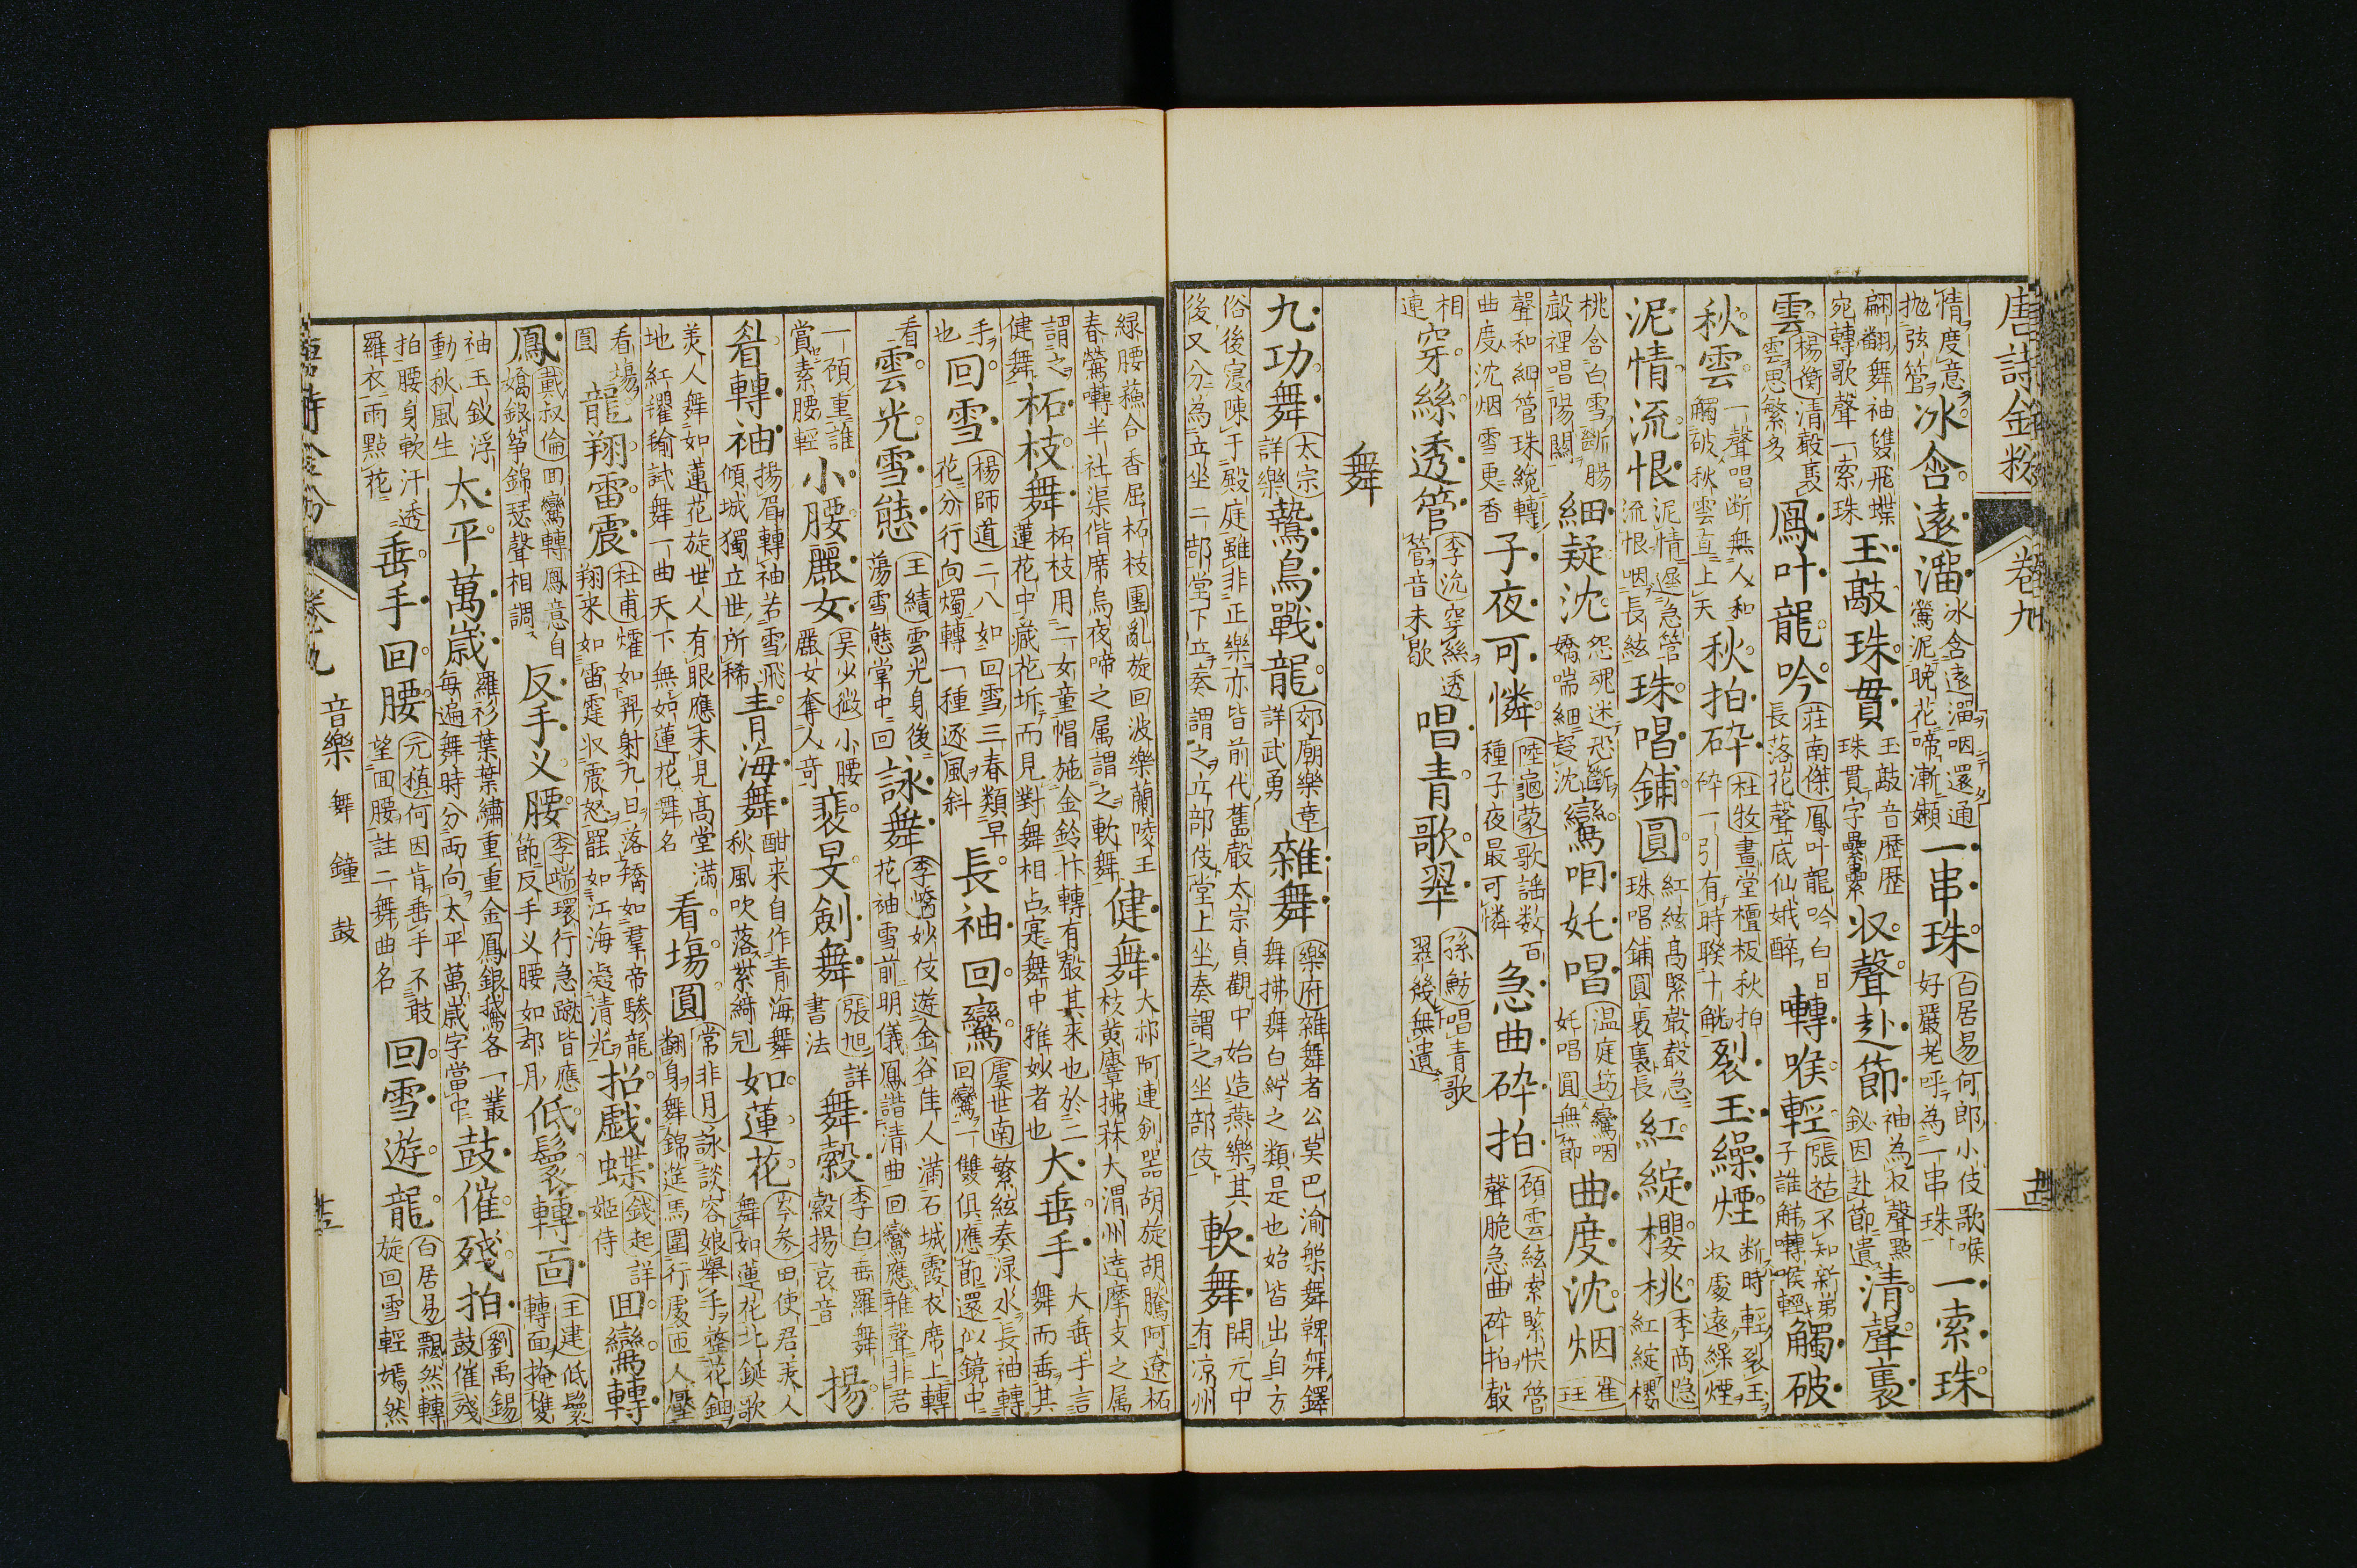 唐詩金粉 卷九
情度意抛弦管 冰含遠溜 冰含遠溜咽還通鶯泥晚花啼漸嬾 一串珠 白居易何郎小伎歌喉好嚴老呼為一串珠 一索珠
翩翻舞袖雙飛蝶宛轉歌聲一索珠 玉敲珠貫 玉敲音歷歷珠貫字纍纍 収聲赴節 袖為収聲點釵因赴節遺 清聲裏
雲 楊衡清聲裏雲思繁多 鳳叶龍吟 莊南傑鳳叶龍吟白日長落花聲底仙娥醉 囀喉輕 張祜不知新弟子誰解囀喉輕 觸破
秋雲 一聲唱断無人和觸破秋雲直上天 秋拍碎 杜牧畫堂檀板秋拍碎一引有時聯十觥 裂玉繰煙 断時輕裂玉収處遠繰煙
泥情流恨 泥情遲急管流恨咽長絃 珠唱鋪圓 紅絃高緊聲聲急珠唱鋪圓裏裏長 紅綻櫻桃 李商隐紅綻櫻
桃含白雪断腸聲裡唱陽關 細疑沈 怨魂迷恐断嬌喘細疑沈 鸞咽奼唱 温庭筠鸞咽奼唱圓無節 曲度沈烟 崔珏
聲和細管珠纔轉曲度沈烟雪更香 子夜可憐 陸龜蒙歌謡数百種子夜最可憐 急曲碎拍 顧雲絃索緊快管聲脆急曲碎拍聲
相連 穿絲透管 李沇穿絲透管音未歇 唱青歌翠 孫魴唱青歌翠幾無遺
舞
九功舞 太宗詳樂 鷙鳥戰龍 郊廟樂章詳武勇 雜舞 樂府雜舞者公莫巴渝槃舞鞞舞鐸舞拂舞白紵之類是也始皆出自方
俗後寖陳于殿庭雖非正樂亦皆前代舊聲太宗貞觀中始造燕樂其後又分為立坐二部堂下立奏謂之立部伎堂上坐奏謂之坐部伎 軟舞 開元中有凉州
緑腰蘓合香屈柘枝團亂旋回波樂蘭陵王春鶯囀半社渠借席烏夜啼之属謂之軟舞 健舞 大祁阿連劍器胡旋胡騰阿遼柘枝黄麞拂菻大渭州達摩支之属
謂之健舞 柘枝舞 柘枝用二女童帽施金鈴抃轉有聲其来也於二蓮花中藏花坼而見對舞相占寔舞中雅妙者也 大垂手 大垂手言舞而垂其
手也 回雪 楊師道二八如回雪三春類早花分行向燭轉一種逐風斜 長袖回鸞 虞世南繁絃奏渌水長袖轉回鸞一雙俱應節還似鏡中
看 雲光雪態 王績雲光身後蕩雪態掌中回 詠舞 李嶠妙伎遊金谷佳人滿石城霞衣席上轉花袖雪前明儀鳳諧清曲回鸞應雅聲非君
一顧重誰賞素腰輕 小腰麗女 吴少微小腰麗女奪人奇 裴旻劍舞 張旭詳書法 舞縠 李白垂羅舞縠揚哀音 揚
眉轉袖 揚眉轉袖若雪飛傾城獨立世所稀 青海舞 酣来自作青海舞秋風吹落紫綺冠 如蓮花 岑参田使君美人舞如蓮花北鋋歌
美人舞如蓮花旋世人有眼應未見高堂滿地紅氍毹試舞一曲天下無如蓮花舞名 看塲圓 常非月詠談容娘舉手整花鈿翻身舞錦筵馬圍行處匝人壓
看塲圓 龍翔雷震 杜甫㸌如羿射九日落矯如羣帝驂龍翔来如雷霆収震怒罷如江海凝清光 招戲蝶 錢起詳姫侍 回鸞轉
鳳 戴叔倫回鸞轉鳳意自嬌銀筝錦瑟聲相調 反手义腰 李端環行急蹴皆應節反手义腰如却月 低鬟轉面 王建低鬟轉面掩雙
袖玉釵浮動秋風生 太平萬歳 羅衫葉葉繡重重金鳳銀鵞各一叢每遍舞時分兩向太平萬歳字當中 鼓催殘拍 劉禹錫鼓催殘
拍腰身軟汗透羅衣雨點花 垂手回腰 元稹何因肯垂手不敢望回腰註二舞曲名 回雪遊龍 白居易飄然轉旋回雪輕嫣然
唐詩金粉 卷九 音樂 舞 鐘 鼓